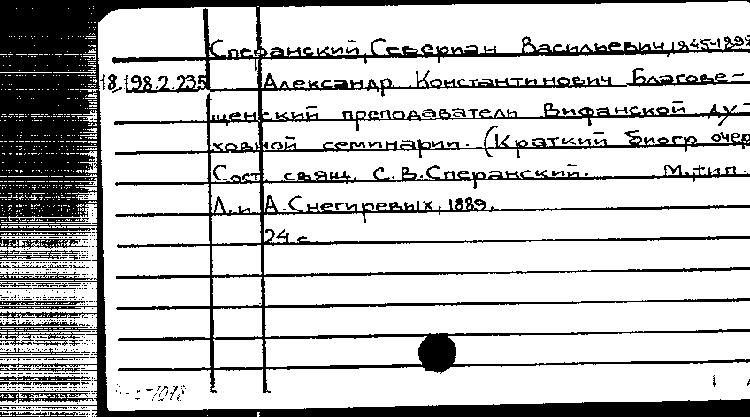 Сперанский, Севериан Васильевич, 1845-1899
18.198.2.235 Александр Константинович Благове-
щенский преподаватель Вифанской ду-
ховной семинарии. (Краткий биогр очер
Сост. свящ. С. В. Сперанский. М, тип.
Л. и А. Снегиревых, 1889.
24 с